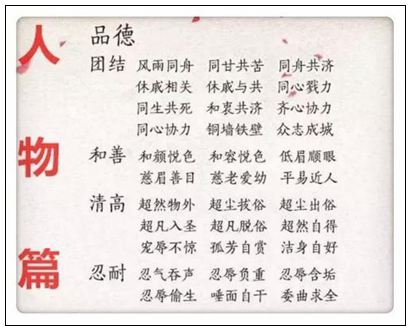 人物篇
品德
团结 风雨同舟 同甘共苦 同舟共济
休戚相关 休戚与共 同心戮力
同生共死 和衷共济 齐心协力
同心协力 铜墙铁壁 众志成城
和善 和颜悦色 和容悦色 低眉顺眼
慈眉善目 慈老爱幼 平易近人
清高 超然物外 超尘拔俗 超尘出俗
超凡入圣 超凡脱俗 超然自得
宠辱不惊 孤芳自赏 洁身自好
忍耐 忍气吞声 忍辱负重 忍辱含垢
忍辱偷生 唾面自干 委曲求全